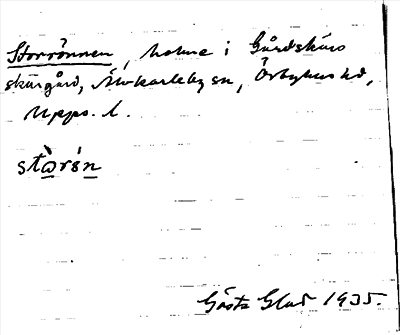 Storrönnen, holme i Gårdskärs
skärgård, Älvkarleby sn, Örbyhus hd,
Upps. l.
stòrśn
Gösta Glad 1935.